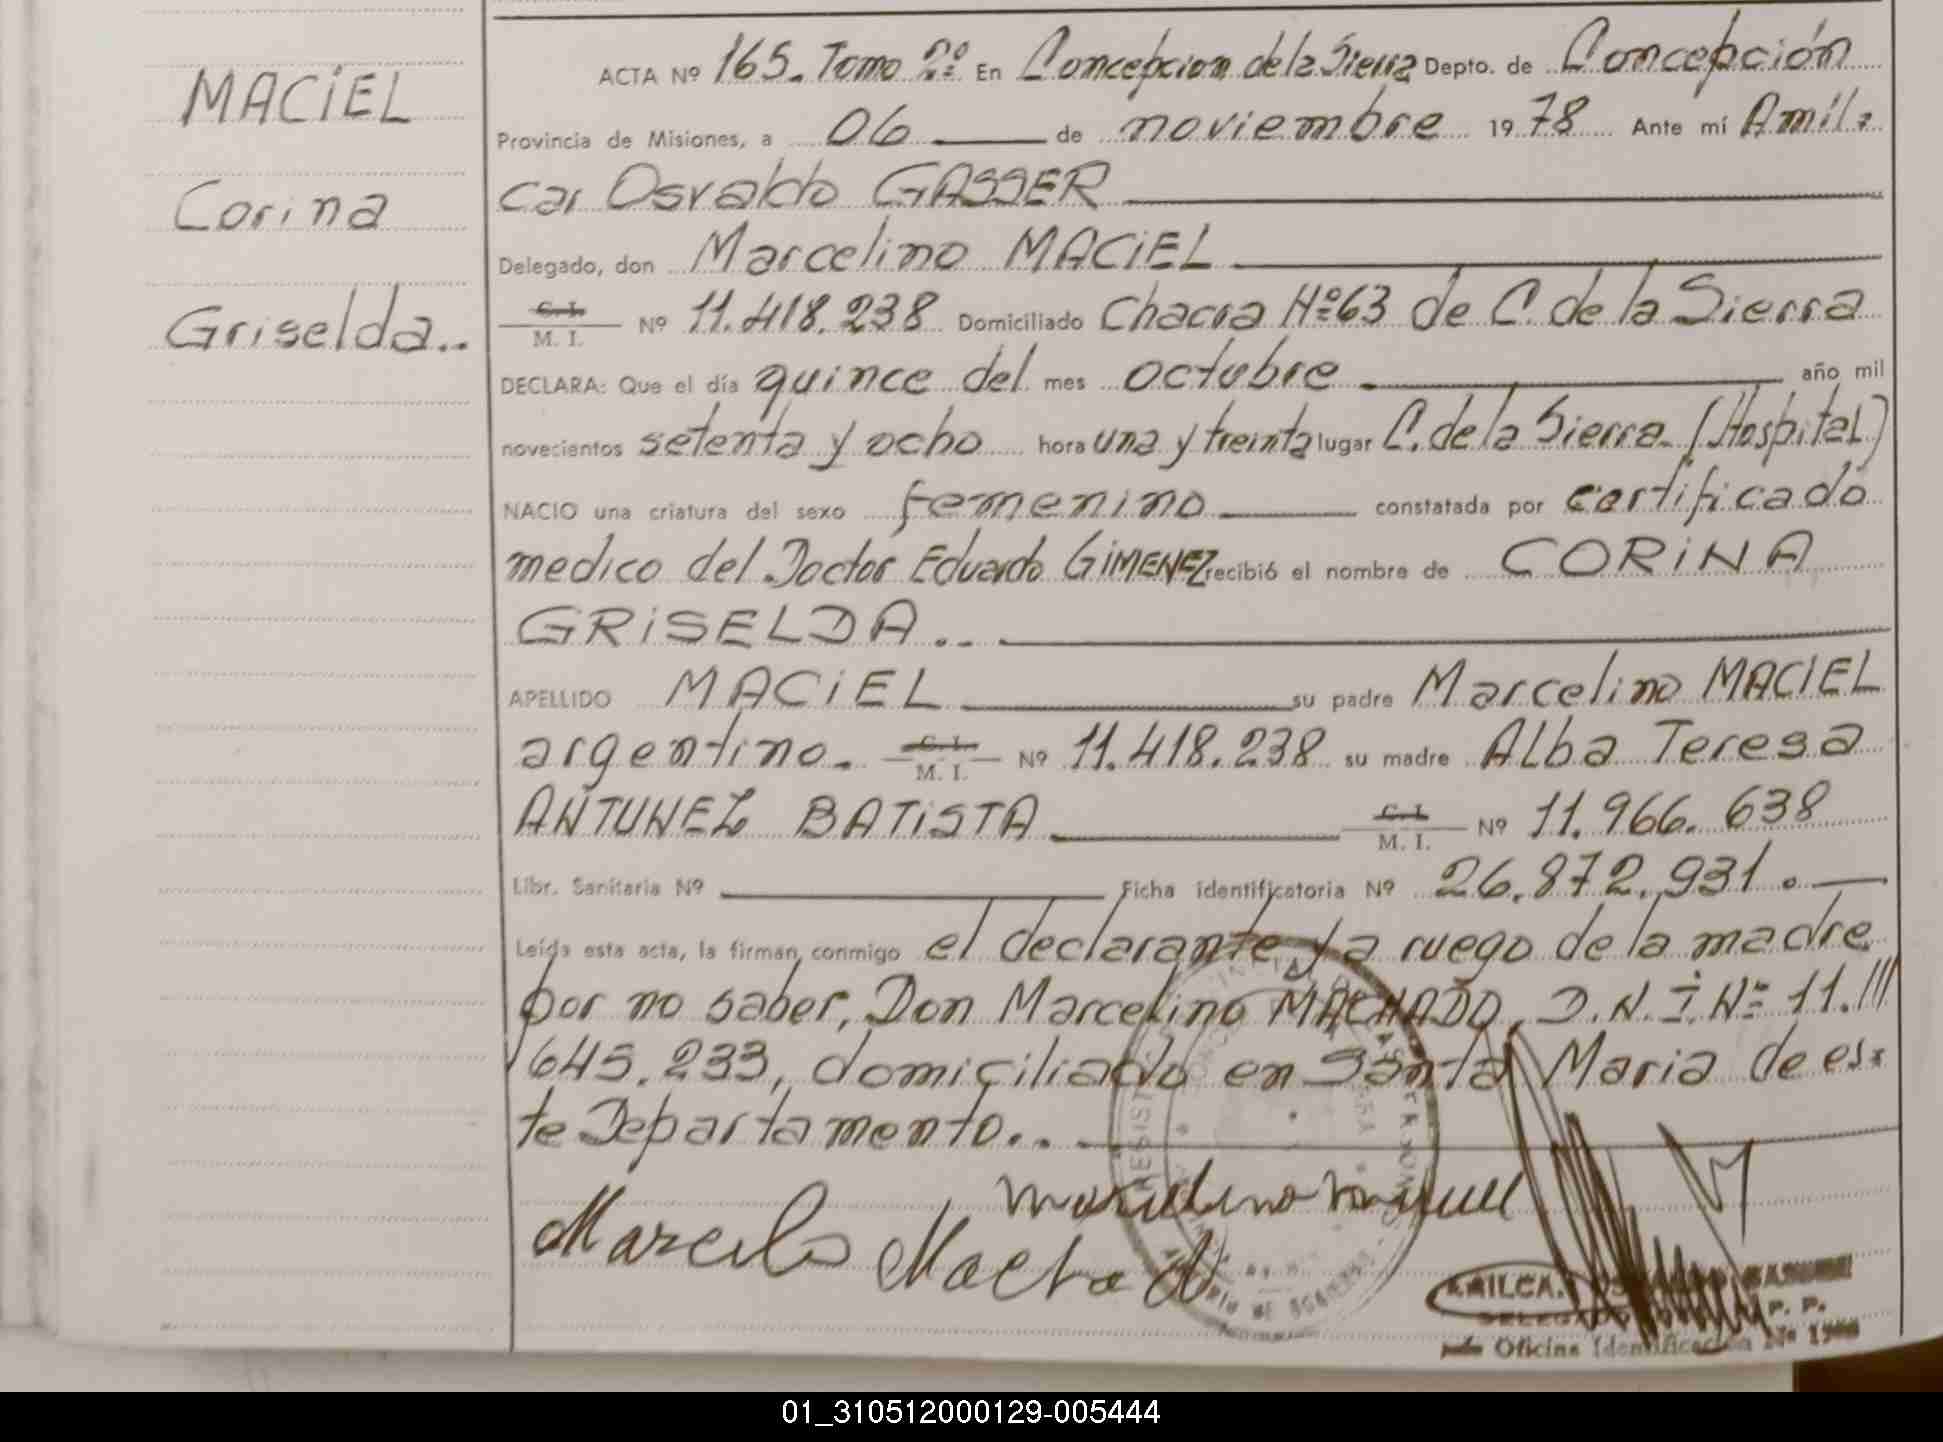 MACiEL
Corina
Griselda..
ACTA Nº 165. Tomo 2º. En Concepcion de la Sierra Depto. de Concepción
Provincia de Misiones, a 06 de noviembre 1978 Ante mí Amil=
car Osvaldo GASSER
Delegado, don Marcelino MACiEL
C. I. M. I. Nº 11.418.238 Domiciliado Chacra Nº 63 de C. de la Sierra
DECLARA: Que el día quince del mes octubre año mil
novecientos setenta y ocho hora una y treinta lugar C. de la Sierra. (Hospital)
NACIO una criatura del sexo femenino constatada por certificado
medico del Doctor Eduardo GiMENEZ recibió el nombre de CORiNA
GRiSELDA..
APELLIDO MACiEL su padre Marcelino MACIEL
argentino. C. I. M. I. Nº 11.418.238 su madre Alba Teresa
ANTUNEZ BATiSTA C. I. M. I. Nº 11.966.638
Libr. Sanitaria Nº Ficha identificatoria Nº 26.872.931.
Leída esta acta, la firman conmigo el declarante y a ruego de la madre
por no saber, Don Marcelino MACHADO, D.N.I. Nº 11.///
645.233, domiciliado en Santa Maria de es=
te Departamento..
Marcelino Maciel
Marcelo Machado
Oficina Identificación Nº
01_310512000129-005444